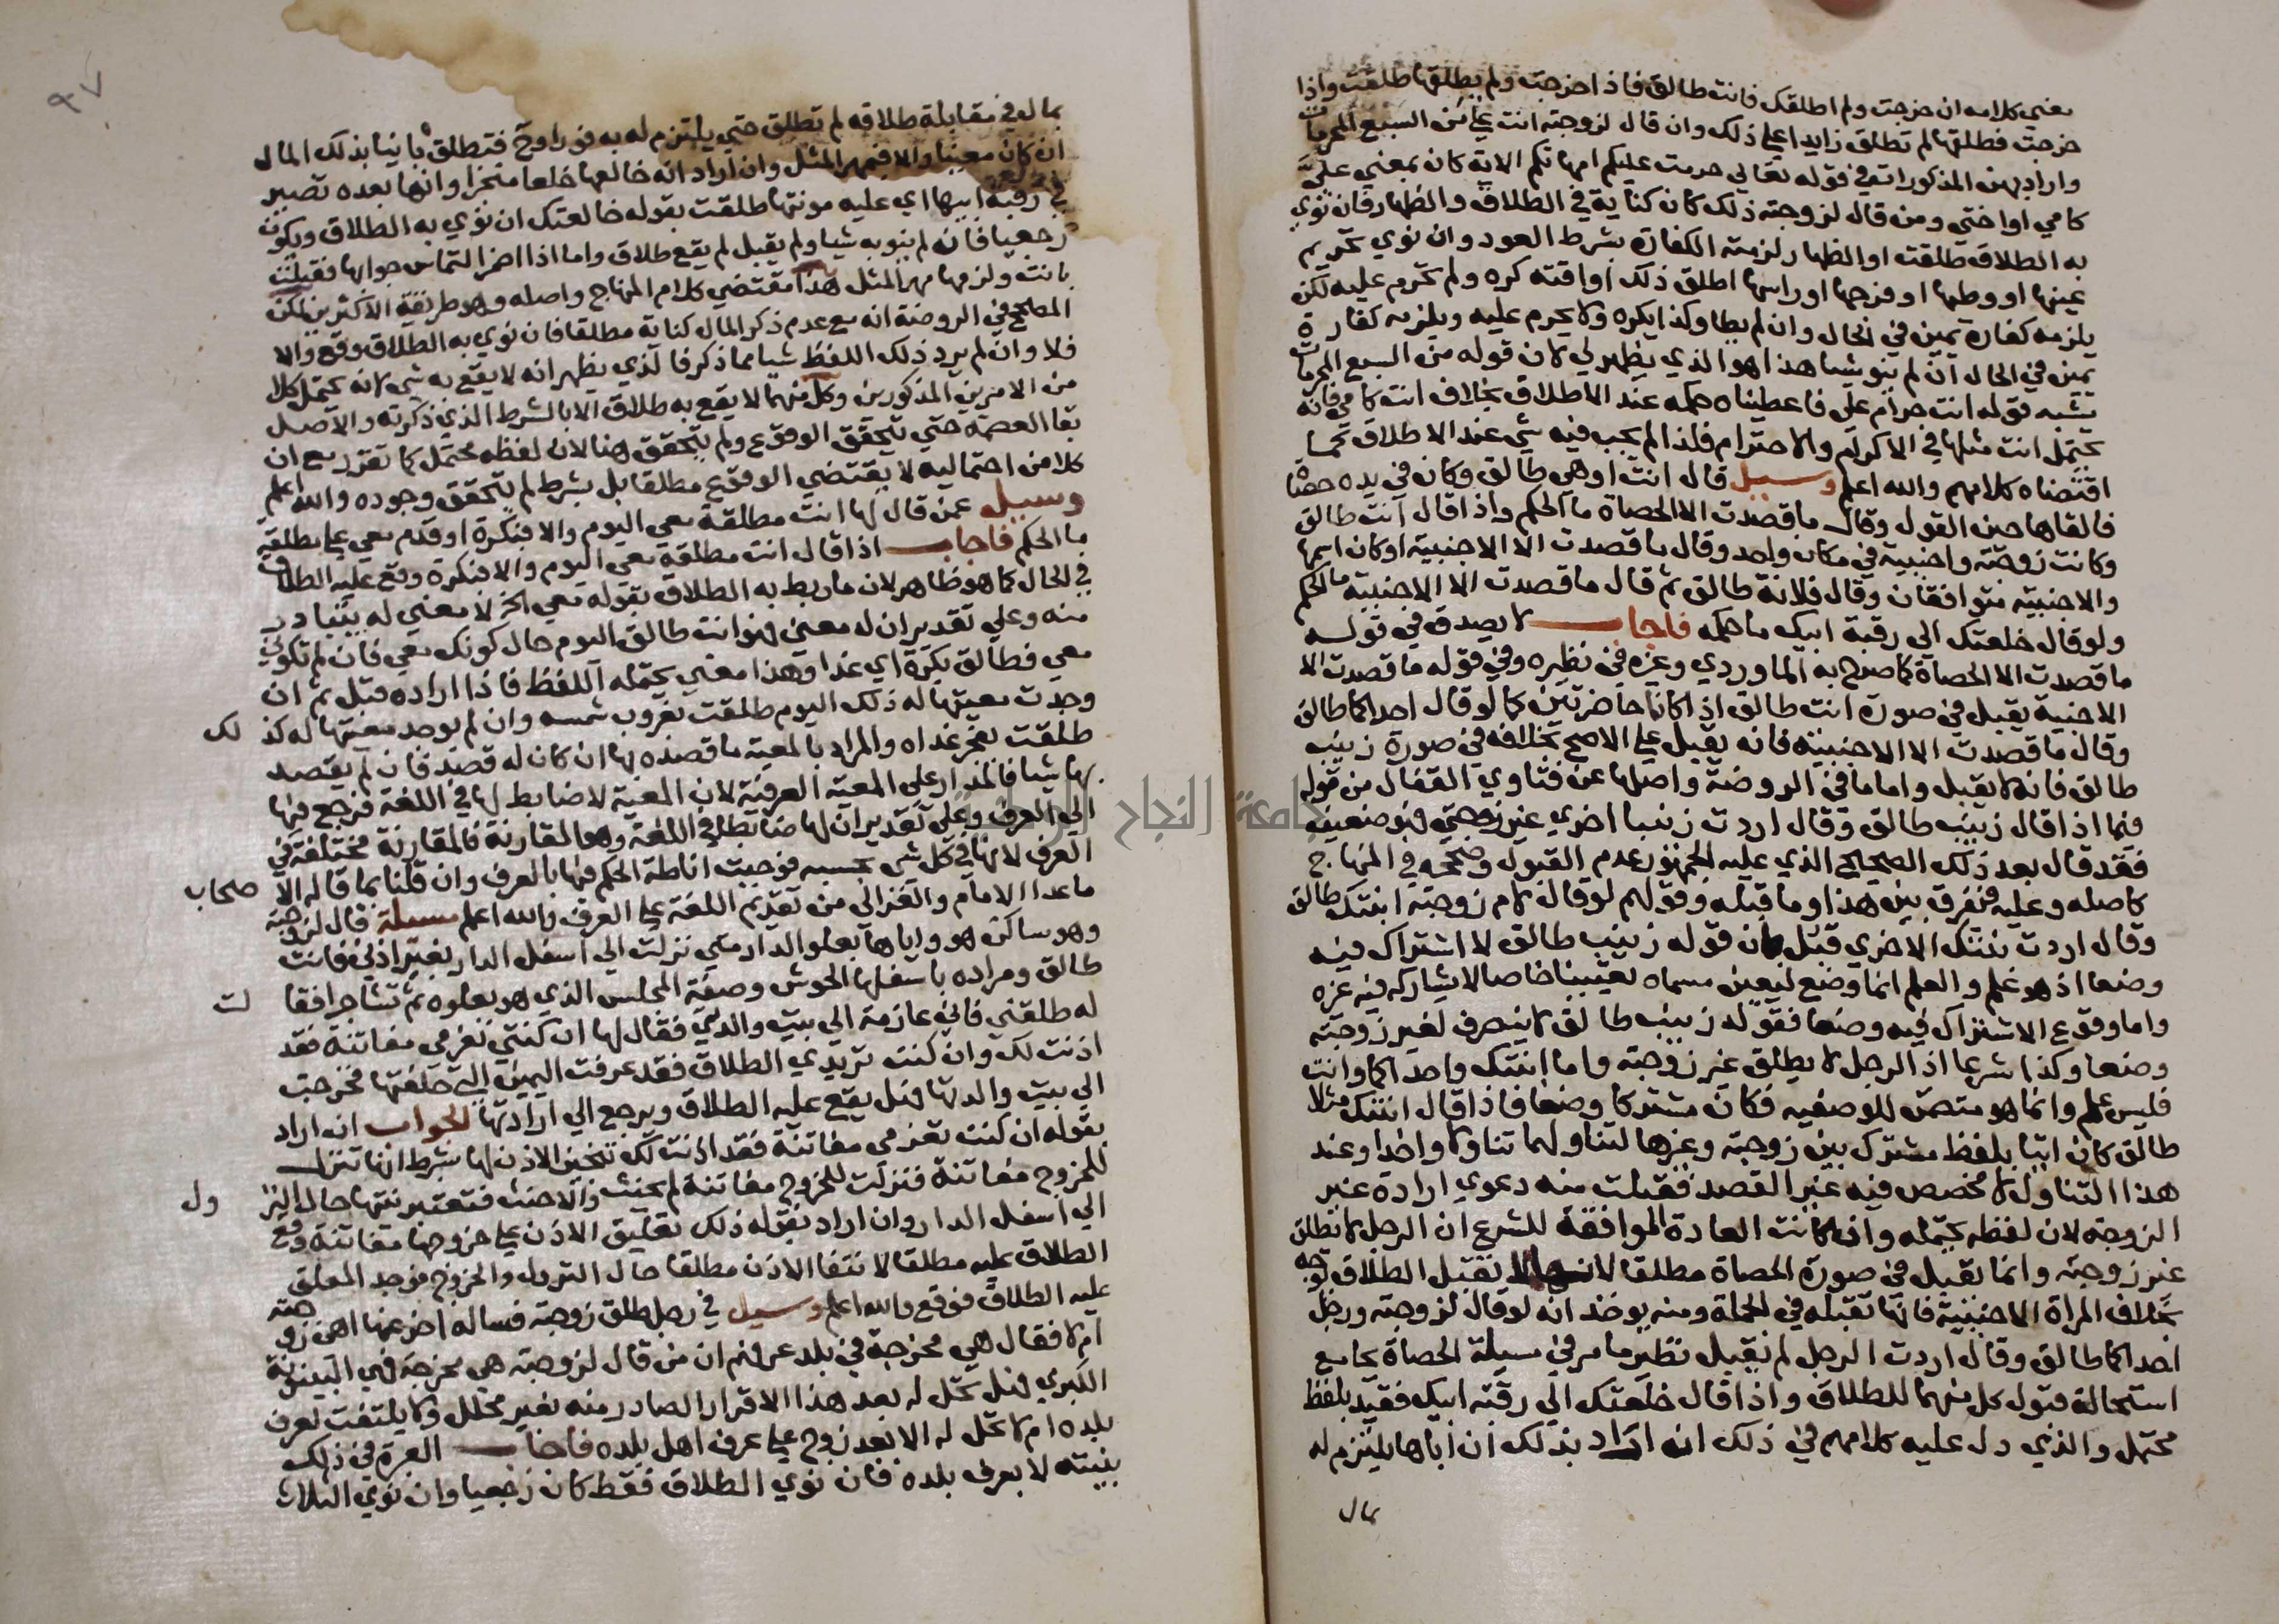 يعني كلامه ان خرجت ولم اطلقك فانت طالق فاذا خرجت ولم يطلقها طلقت واذا
خرجت فطلقها لم تطلق زايدا على ذلك وان قال لزوجته انت علي من السبع المحرمات
واراد بهن المذكورات في قوله تعالى حرمت عليكم امهاتكم الاية كان بمعنى علي
كامي او اختي ومن قال لزوجته ذلك كان كناية في الطلاق والظهار فان نوى
به الطلاق طلقت او الظهار لزمته الكفارة بشرط العود وان نوى تحريم
عينها او وطيها او فرجها او راسها اطلق ذلك او اقته كره ولم تحرم عليه لكن
يلزمه كفارة يمين في الحال وان لم يطا وكذا يكره ولا يحرم عليه ويلزمه كفارة
يمين في الحال ان لم ينو شيا هذا هو الذي يظهر لي لان قوله من السبع المحرمات
يشبه قوله انت حرام علي فاعطيناه حكمه عند الاطلاق بخلاف انت كامي فانه
يحتمل انت مثلها في الاكرام والاحترام فلذا لم يجب فيه شي عند الاطلاق كما
اقتضاه كلامهم والله اعلم وسيل قال انت او هي طالق وكان في يده حصا
فالقاها حين القول وقال ما قصدت الا الحصاة ما الحكم واذا قال انت طالق
وكانت زوجته واجنبية في مكان واحد وقال ما قصدت الا الاجنبية او كان اسمها
والاجنبية متوافقان وقال فلانة طالق ثم قال ما قصدت الا الاجنبية ما الحكم
ولو قال خلعتك الى رقبة ابيك ما حكمه فاجاب لا يصدق في قوله
ما قصدت الا الحصاة كما صرح به الماوردي وغيره في نظيره وفي قوله ما قصدت الا
الاجنبية يقبل في صورة انت طالق اذا كانا حاضرتين كما لو قال احداكما طالق
وقال ما قصدت الا الاجنبية فانه يقبل على الاصح بخلافه في صورة زينب
طالق فانه لا يقبل واما ما في الروضة واصلها عن فتاوي القفال من قوله
فيما اذا قال زينب طالق وقال اردت زينبا اخرى غير زوجتي فهو ضعيف
فقد قال بعد ذلك الصحيح الذي عليه الجمهور عدم القبول وصححه في المنهاج
كاصله وعليه فنفرق بين هذا وما قبله وقولهم لو قال لام زوجته ابنتك طالق
وقال اردت بنتك الاخرى قبل بان قوله زينب طالق لا اشتراك فيه
وضعا اذ هو علم والعلم انما وضع ليعين مسماه تعيينا خاصا لا يشاركه فيه غيره
واما وقوع الاشتراك فيه وضعا فقوله زينب طالق لا ينصرف لغير زوجته
وضعا وكذا شرعا اذ الرجل لا يطلق غير زوجته واما ابنتك واحداكما وانت
فليس علم وانما هو متضمن للوصفيه فكان مشتركا وضعا فاذا قال ابنتك مثلا
طالق كان اتيا بلفظ مشترك بين زوجته وغيرها لتناولهما تناولا واحدا وعند
هذا التناول لا مخصص فيه غير القصد فقبلت منه دعوي ارادة غير
الزوجة لان لفظه يحتمله وان كانت العادة الموافقة للشرع ان الرجل لا يطلق
غير زوجته وانما يقبل في صورة الحصاة مطلقا لانها لا تقبل الطلاق بوجه
بخلاف المراة الاجنبية فانها تقبله في الجملة ومنه يوخذ انه لو قال لزوجته ورجل
احداكما طالق وقال اردت الرجل لم يقبل نظير ما مر في مسيلة الحصاة بجامع
استحالة قبول كل منهما للطلاق واذا قال خلعتك الى رقبة ابيك فقيد بلفظ
محتمل والذي دل عليه كلامهم في ذلك انه اراد بذلك ان اباها يلتزم له
بمال
٩٧
بمال في مقابلة طلاقه لم تطلق حتي يلتزم له به فورا وح فتطلق باينا بذلك المال
ان كان معينا والا فبمهر المثل وان اراد انه خالعها خلعا منجزا وانها بعده تصير
في رقبة ابيها اي عليه مونتها طلقت بقوله خالعتك ان نوي به الطلاق ويكون
رجعيا فان لم ينو به شيا ولم يقبل لم يقع طلاق واما اذا اضمر التماس جوابها فقبلت
بانت ولزمها مهر المثل هذا مقتضى كلام المنهاج واصله وهو طريقة الاكثرين لكن
المصحح في الروضة انه مع عدم ذكر المال كناية مطلقا فان نوي به الطلاق وقع والا
فلا وان لم يرد ذلك اللفظ شيا مما ذكر فالذي يظهر انه لا يقع به شي لانه يحتمل كلا
من الامرين المذكورين وكل منهما لا يقع به طلاق الا بالشرط الذي ذكرته والاصل
بقا العصمة حتى يتحقق الوقوع ولم يتحقق هنا لان لفظه محتمل كما تقرر مع ان
كلا من احتماليه لا يقتضي الوقوع مطلقا بل بشرط لم يتحقق وجوده والله اعلم
وسيل عمن قال لها انت مطلقة معي اليوم والا فبكرة او قدم معي على مطلقة
ما الحكم فاجاب اذا قال انت مطلقة معي اليوم والا فبكرة وقع عليه الطلاق
في الحال كما هو ظاهر لان ما ربط به الطلاق بقوله معي الخ لا معنى له يتبادر
منه وعلى تقدير ان له معنى فهو انت طالق اليوم حال كونك معي فان لم تكوني
معي فطالق بكرة اي غدا وهذا معنى يحتمله اللفظ فاذا اراده قبل ثم ان
وجدت معيتها له ذلك اليوم طلقت بغروب شمسه وان لم توجد معيتها له كذلك
طلقت بفجر غداه والمراد بالمعية ما قصده بها ان كان له قصد فان لم يقصد
بها شيا فالمدار على المعية العرفية لان المعية لا ضابط لها في اللغة فرجع فيها
الى العرف وعلى تقدير ان لها ضابطا في اللغة وهو المقارنة فالمقارنة مختلفة في
العرف لانها في كل شي بحسبه فوجبت اناطة الحكم فيها بالعرف وان قلنا بما قاله الاصحاب
ما عدا الامام والغزالي من تقديم اللغة على العرف والله اعلم مسيلة قال لزوجته
وهو ساكن هو واياها بعلو الدار متي نزلت الى اسفل الدار بغير اذني فانت
طالق ومراده باسفلها الحوش وصفة المجلس الذي هو بعلوه ثم تشاجرا فقالت
له طلقني فاني عازمة الى بيت والدتي فقال لها ان كنتي تغزمي مفاتنة فقد
اذنت لك وان كنت تريدي الطلاق فقد عرفت اليمين التي حلفتها فخرجت
الى بيت والدتها فهل يقع عليه الطلاق ويرجع الى ارادتها الجواب ان اراد
بقوله ان كنت تعزمي مفاتنة فقد اذنت لك تنجيز الاذن لها بشرط انها تنزل
للخروج مفاتنة فنزلت للخروج مفاتنة لم يحنث والا حنث فتعتبر نيتها حال النزول
الى اسفل الدار وان اراد بقوله ذلك تعليق الاذن على خروجها مفاتنة وقع
الطلاق عليه مطلقا لانتفا الاذن مطلقا حال النزول والخروج فوجد المعلق
عليه الطلاق فوقع والله اعلم وسيل في رجل طلق زوجته فساله اخر عنها اهي زوجته
ام لا فقال هي محرجة في بلد عرفهم ان من قال لزوجته هي محرجة فهي البينونة
الكبري فهل تحل له بعد هذا الاقرار الصادر منه بغير محلل ولا يلتفت لعرف
بلده ام لا تحل له الا بعد زوج على عرف اهل بلده فاجاب العبرة في ذلك
بنيته لا بعرف بلده فان نوي الطلاق فقط كان رجعيا وان نوي الثلاث
جامعة النجاح الوطنية